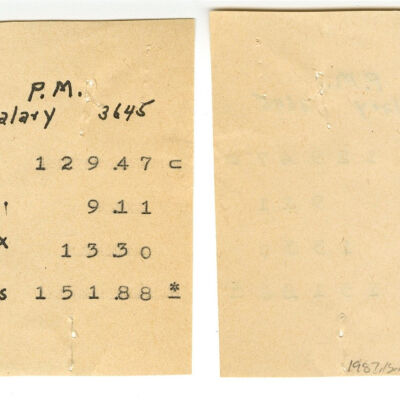 P.M.
alary 3645
129.47 c
9.11
x 13.30
s 151.88 *